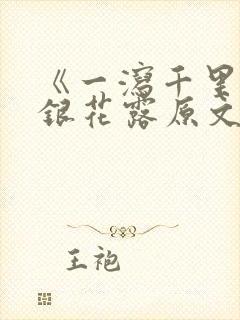 《一泻千里
银花露原文
王袍